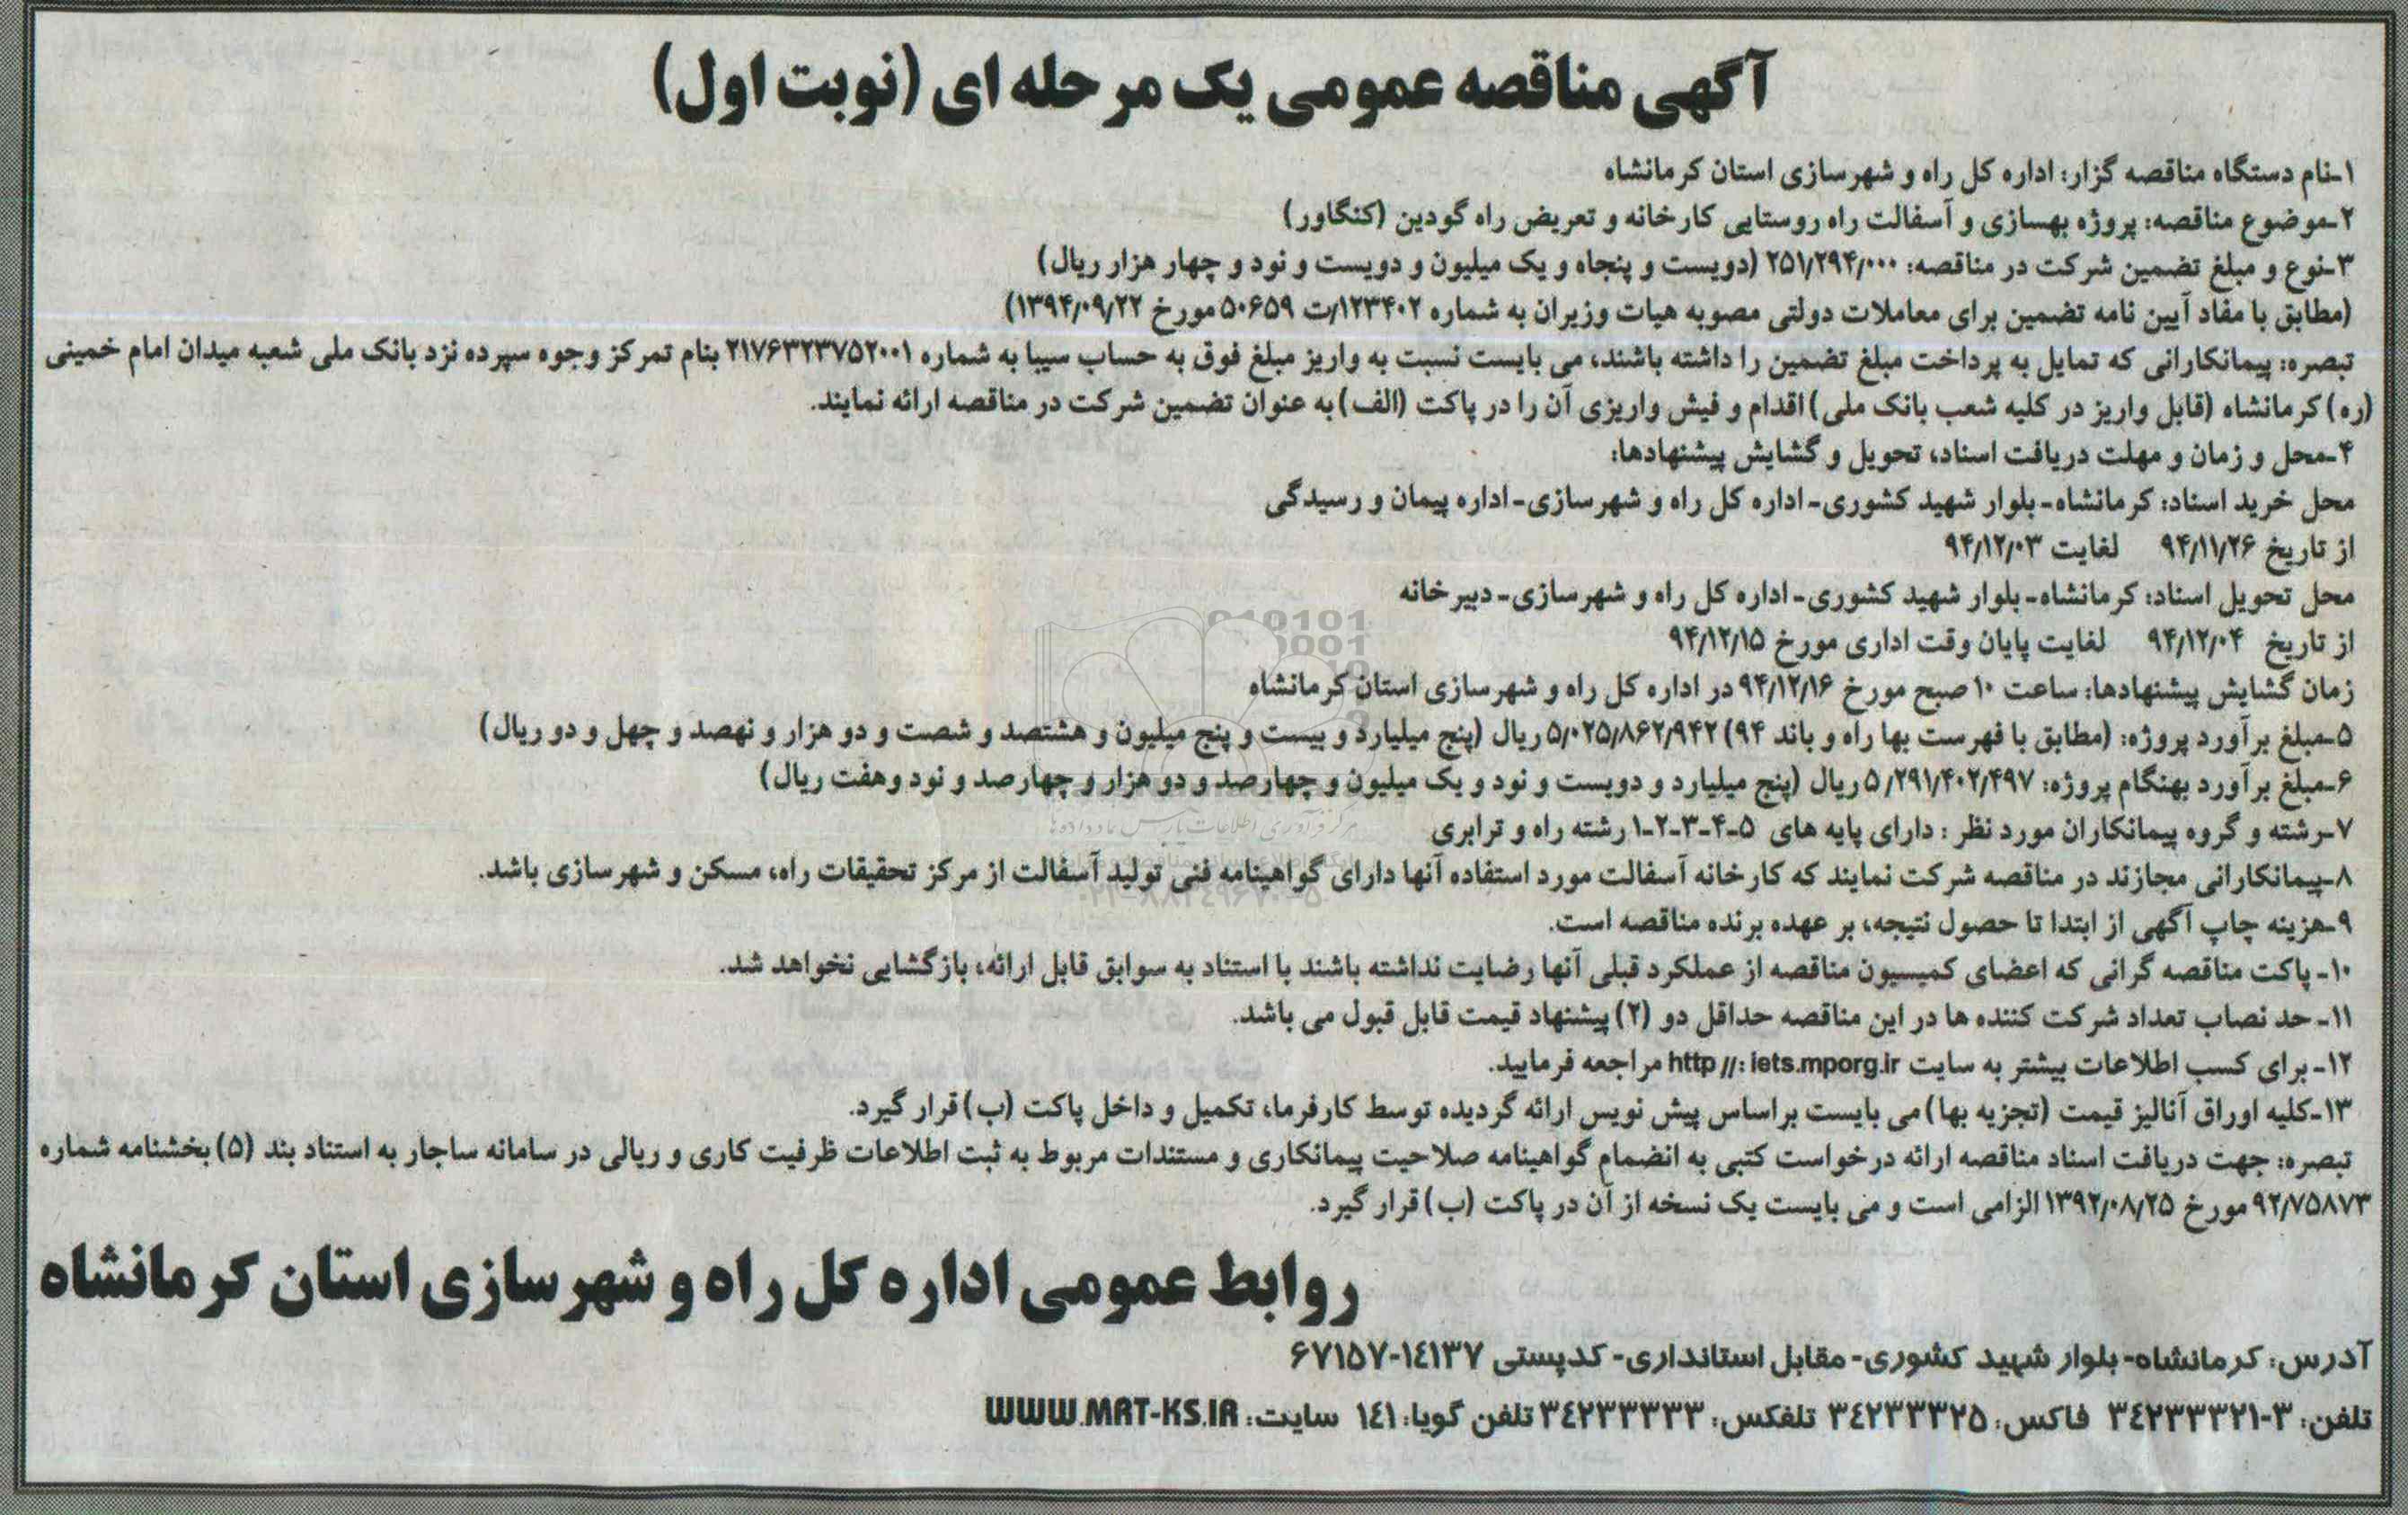 آگهی مناقصه عمومی یک مرحله ای (نوبت اول)
۱-نام دستگاه مناقصه گزار: اداره کل راه و شهرسازی استان کرمانشاه
۲-موضوع مناقصه: پروژه بهسازی و آسفالت راه روستایی کارخانه و تعریض راه گودین (کنگاور)
۳-نوع و مبلغ تضمین شرکت در مناقصه: ۲۵۱/۲۹۴/۰۰۰ (دویست و پنجاه و یک میلیون و دویست و نود و چهار هزار ریال)
(مطابق با مفاد آیین نامه تضمین برای معاملات دولتی مصوبه هیات وزیران به شماره ۱۲۳۴۰۲/ت ۵۰۶۵۹ مورخ ۱۳۹۴/۰۹/۲۲)
تبصره: پیمانکارانی که تمایل به پرداخت مبلغ تضمین را داشته باشند، می بایست نسبت به واریز مبلغ فوق به حساب سیبا به شماره ۲۱۷۶۳۲۳۷۵۲۰۰۱ بنام تمرکز وجوه سپرده نزد بانک ملی شعبه میدان امام خمینی
(ره) کرمانشاه (قابل واریز در کلیه شعب بانک ملی) اقدام و فیش واریزی آن را در پاکت (الف) به عنوان تضمین شرکت در مناقصه ارائه نمایند.
۴-محل و زمان و مهلت دریافت اسناد، تحویل و گشایش پیشنهادها:
محل خرید اسناد: کرمانشاه-بلوار شهید کشوری- اداره کل راه و شهرسازی-اداره پیمان و رسیدگی
از تاریخ ۹۴/۱۱/۲۶ لغایت ۹۴/۱۲/۰۳
محل تحویل اسناد: کرمانشاه-بلوار شهید کشوری- اداره کل راه و شهرسازی- دبیرخانه
از تاریخ ۹۴/۱۲/۰۴ لغایت پایان وقت اداری مورخ ۹۴/۱۲/۱۵
زمان گشایش پیشنهادها: ساعت ۱۰ صبح مورخ ۹۴/۱۲/۱۶ در اداره کل راه و شهرسازی استان کرمانشاه
۵-مبلغ برآورد پروژه: (مطابق با فهرست بها راه و باند ۹۴) ۵/۰۲۵/۸۶۲/۹۴۲ ریال (پنج میلیارد و بیست و پنج میلیون و هشتصد و شصت و دو هزار و نهصد و چهل و دو ریال)
۶-مبلغ برآورد بهنگام پروژه: ۵/۲۹۱/۴۰۲/۴۹۷ ریال (پنج میلیارد و دویست و نود و یک میلیون و چهارصد و دو هزار و چهارصد و نود وهفت ریال)
۷-رشته و گروه پیمانکاران مورد نظر : دارای پایه های ۵-۴-۳-۲-۱ رشته راه و ترابری
۸-پیمانکارانی مجازند در مناقصه شرکت نمایند که کارخانه آسفالت مورد استفاده آنها دارای گواهینامه فنی تولید آسفالت از مرکز تحقیقات راه، مسکن و شهرسازی باشد.
۹-هزینه چاپ آگهی از ابتدا تا حصول نتیجه، بر عهده برنده مناقصه است.
۱۰- پاکت مناقصه گرانی که اعضای کمیسیون مناقصه از عملکرد قبلی آنها رضایت نداشته باشند با استناد به سوابق قابل ارائه، بازگشایی نخواهد شد.
۱۱- حد نصاب تعداد شرکت کننده ها در این مناقصه حداقل دو (۲) پیشنهاد قیمت قابل قبول می باشد.
۱۲- برای کسب اطلاعات بیشتر به سایت http //: iets.mporg.ir مراجعه فرمایید.
۱۳-کلیه اوراق آنالیز قیمت (تجزیه بها) می بایست براساس پیش نویس ارائه گردیده توسط کارفرما، تکمیل و داخل پاکت (ب) قرار گیرد.
تبصره: جهت دریافت اسناد مناقصه ارائه درخواست کتبی به انضمام گواهینامه صلاحیت پیمانکاری و مستندات مربوط به ثبت اطلاعات ظرفیت کاری و ریالی در سامانه ساجار به استناد بند (۵) بخشنامه شماره
۹۲/۷۵۸۷۳ مورخ ۱۳۹۲/۰۸/۲۵ الزامی است و می بایست یک نسخه از آن در پاکت (ب) قرار گیرد.
روابط عمومی اداره کل راه و شهرسازی استان کرمانشاه
آدرس: کرمانشاه- بلوار شهید کشوری- مقابل استانداری- کدپستی ۱۴۱۳۷-۶۷۱۵۷
تلفن: ۳-۳۴۲۳۳۳۲۱ فاکس: ۳۴۲۳۳۳۲۵ تلفکس: ۳۴۲۳۳۳۳۳ تلفن گویا: ۱۴۱ سایت: WWW.MRT-KS.IR